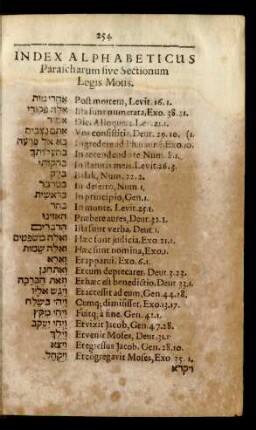 254
INDEX ALPHABETICUS
Paraicharum sive Sectionum
Legis Mosis.
אחרי מות Post mortem, Levit. 16. 1.
אלה פקודי Ista sunt numerata, Exo. 38. 21.
אמור Dic, Alloquere, Lev. 21. 1.
אתם נצבים Vos consistitis, Deut. 29. 10.
בא אל פרעה Ingredere ad Pharaonē, Exo. 10.
בהעלותך In accendendo te Num. 8. 1.
בחקותי In statutis meis. Levit. 26. 3.
בלק Balak, Num. 22. 2.
במדבר In deserto, Num. 1.
בראשית In principio, Gen. 1.
בהר In monte. Levit. 25. 1.
האזינו Præbete aures, Deut. 32. 1.
הדברים Ista sunt verba. Deut. 1.
ואלה משפטים Hæc sunt judicia, Exo. 21. 1.
ואלה שמות Hæc sunt nomina, Exo. 1.
וארא Et apparui. Exo. 6. 1.
ואתחנן Et cum deprecarer. Deut. 3. 23.
וזאת הברכה Et hæc est benedictio. Deut. 33. 1.
ויגש אליו Et accessit ad eum, Gen. 44. 18.
ויהי בשלח Cumq; dimisisset. Exo. 13. 17.
ויהי מקץ Fuitq; à fine. Gen. 41. 1.
ויחי יעקב Et vixit Jacob, Gen. 47. 28.
וילך Et venit Moses, Deut. 31.
ויצא Et egressus Jacob. Gen. 28. 10.
ויקהל Et congregavit Moses, Exo 35. 1.
ויקרא